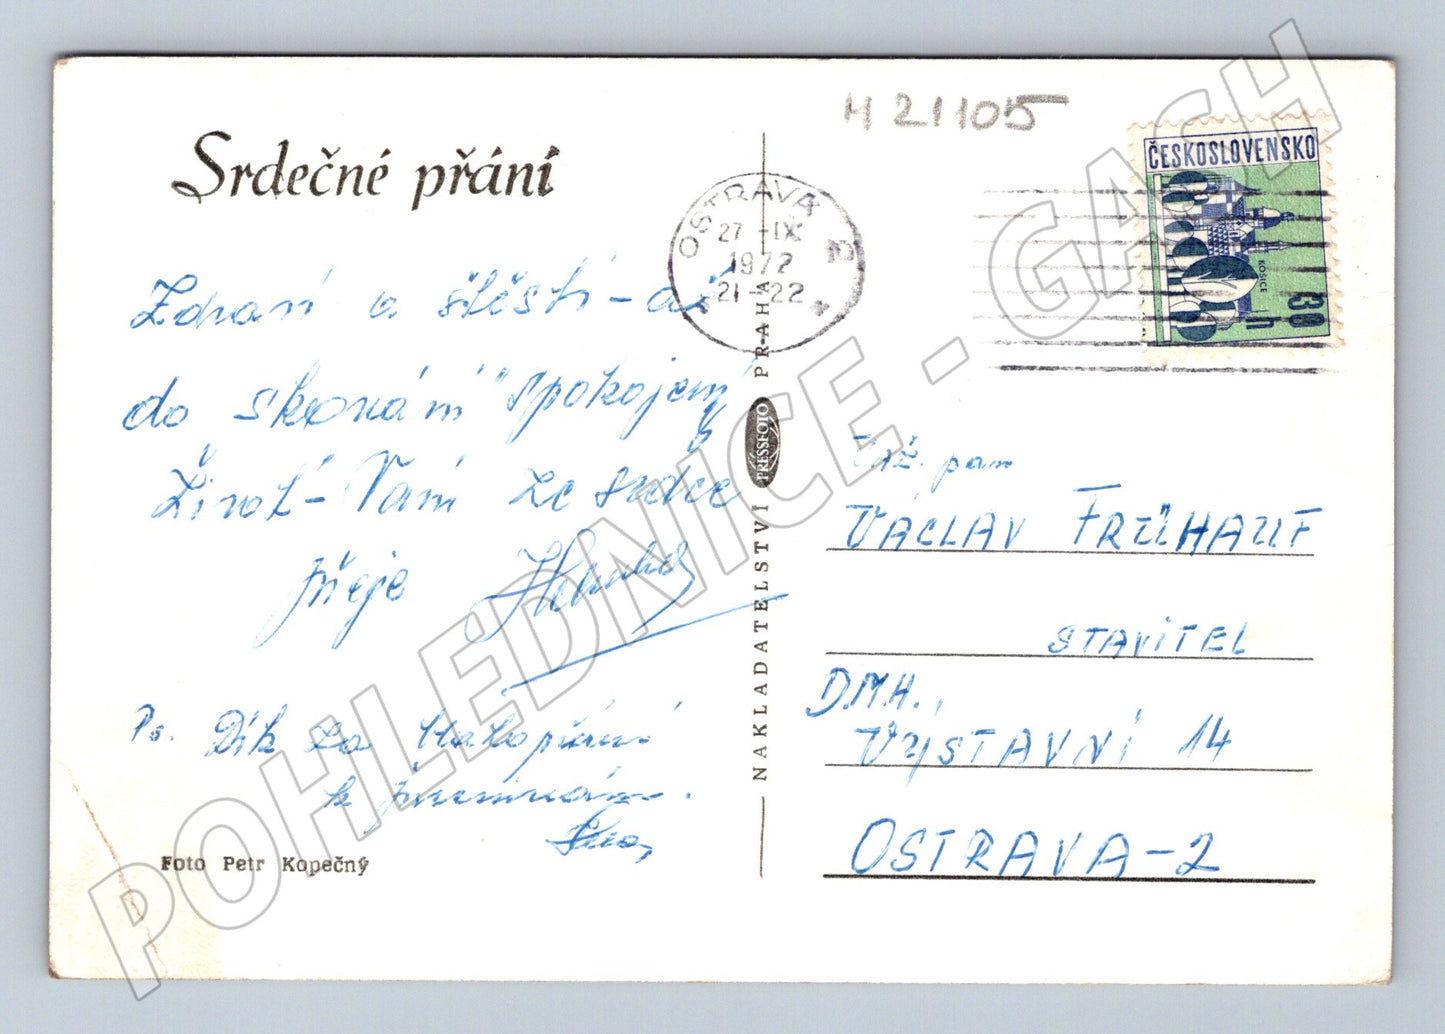 Srdečné přání
H 21105
OSTRAVA 2
27 -IX
1972
21-22
ČESKOSLOVENSKO
KOŠICE
30 h
Zdraví a štěstí - až
do skonání "spokojený
Život - Vám ze srdce
přeje
Ps. Dík za blahopřání
k
Foto Petr Kopečný
NAKLADATELSTVÍ PRESSFOTO PRAHA
Váž. pan
VÁCLAV FRÜHAUF
STAVITEL
D.M.H.,
VÝSTAVNÍ 14
OSTRAVA-2
POHLEDNICE - GACH